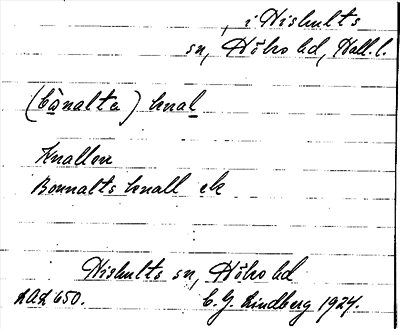 , i Hishults
sn, Höks hd, Hall.l.
(bånalta) knal
Knallen
Bonnalts knall ek
Hishults sn, Höks hd
LAL 650. C. G. Lindberg 1927.